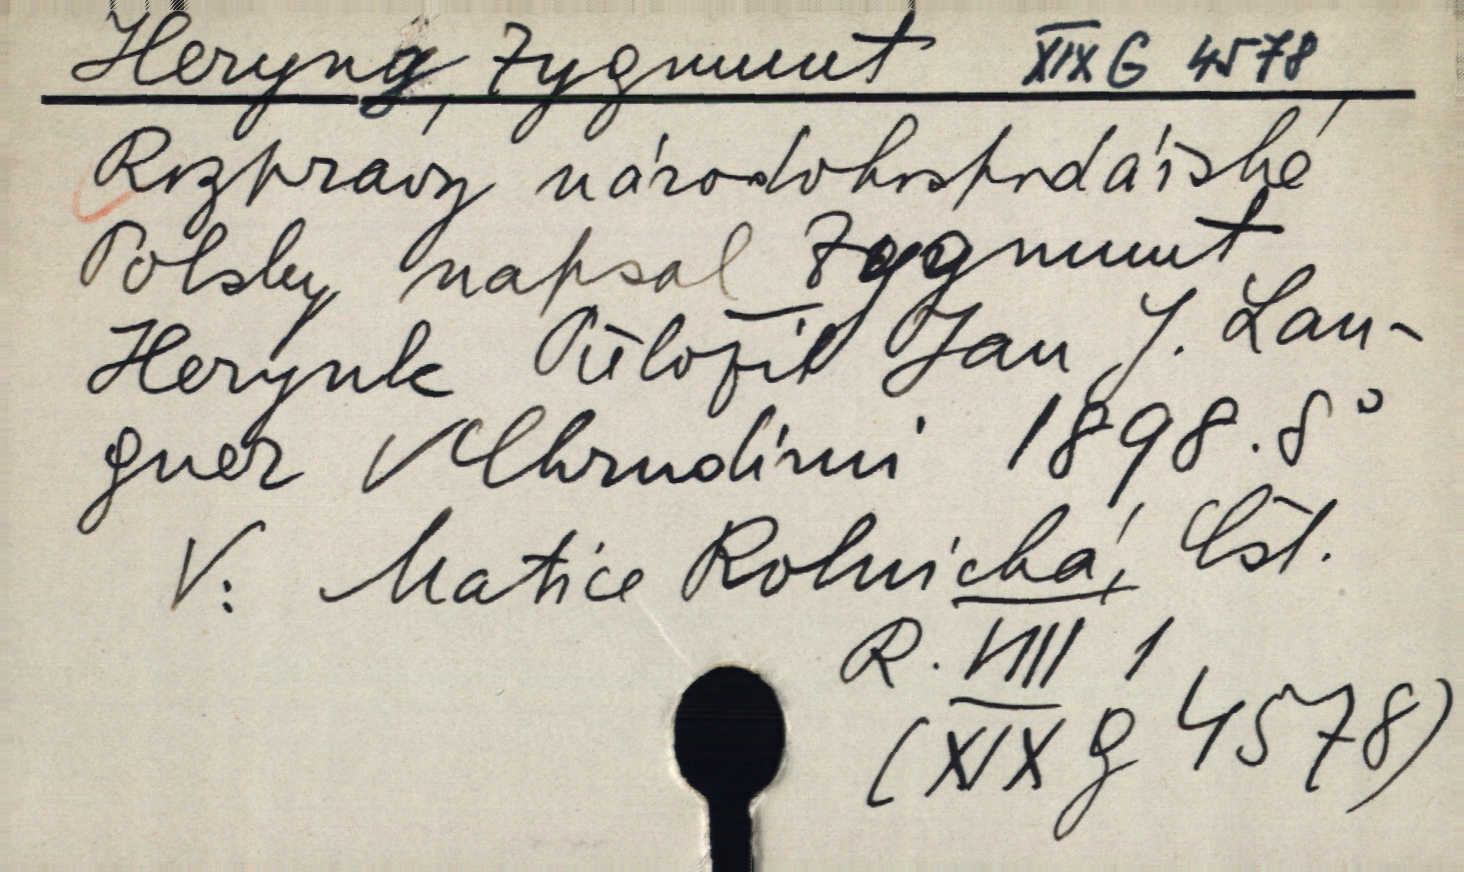 Heryng, Zygmunt XIX G 4578
Rozpravy národohospodářské
Polsky napsal Zygmunt
Herynk Přeložil Jan J. Lan-
gner V Chrudimi 1898. 8°
V: Matice Rolnická, Čsl.
R. VIII 1
(XIX g 4578)